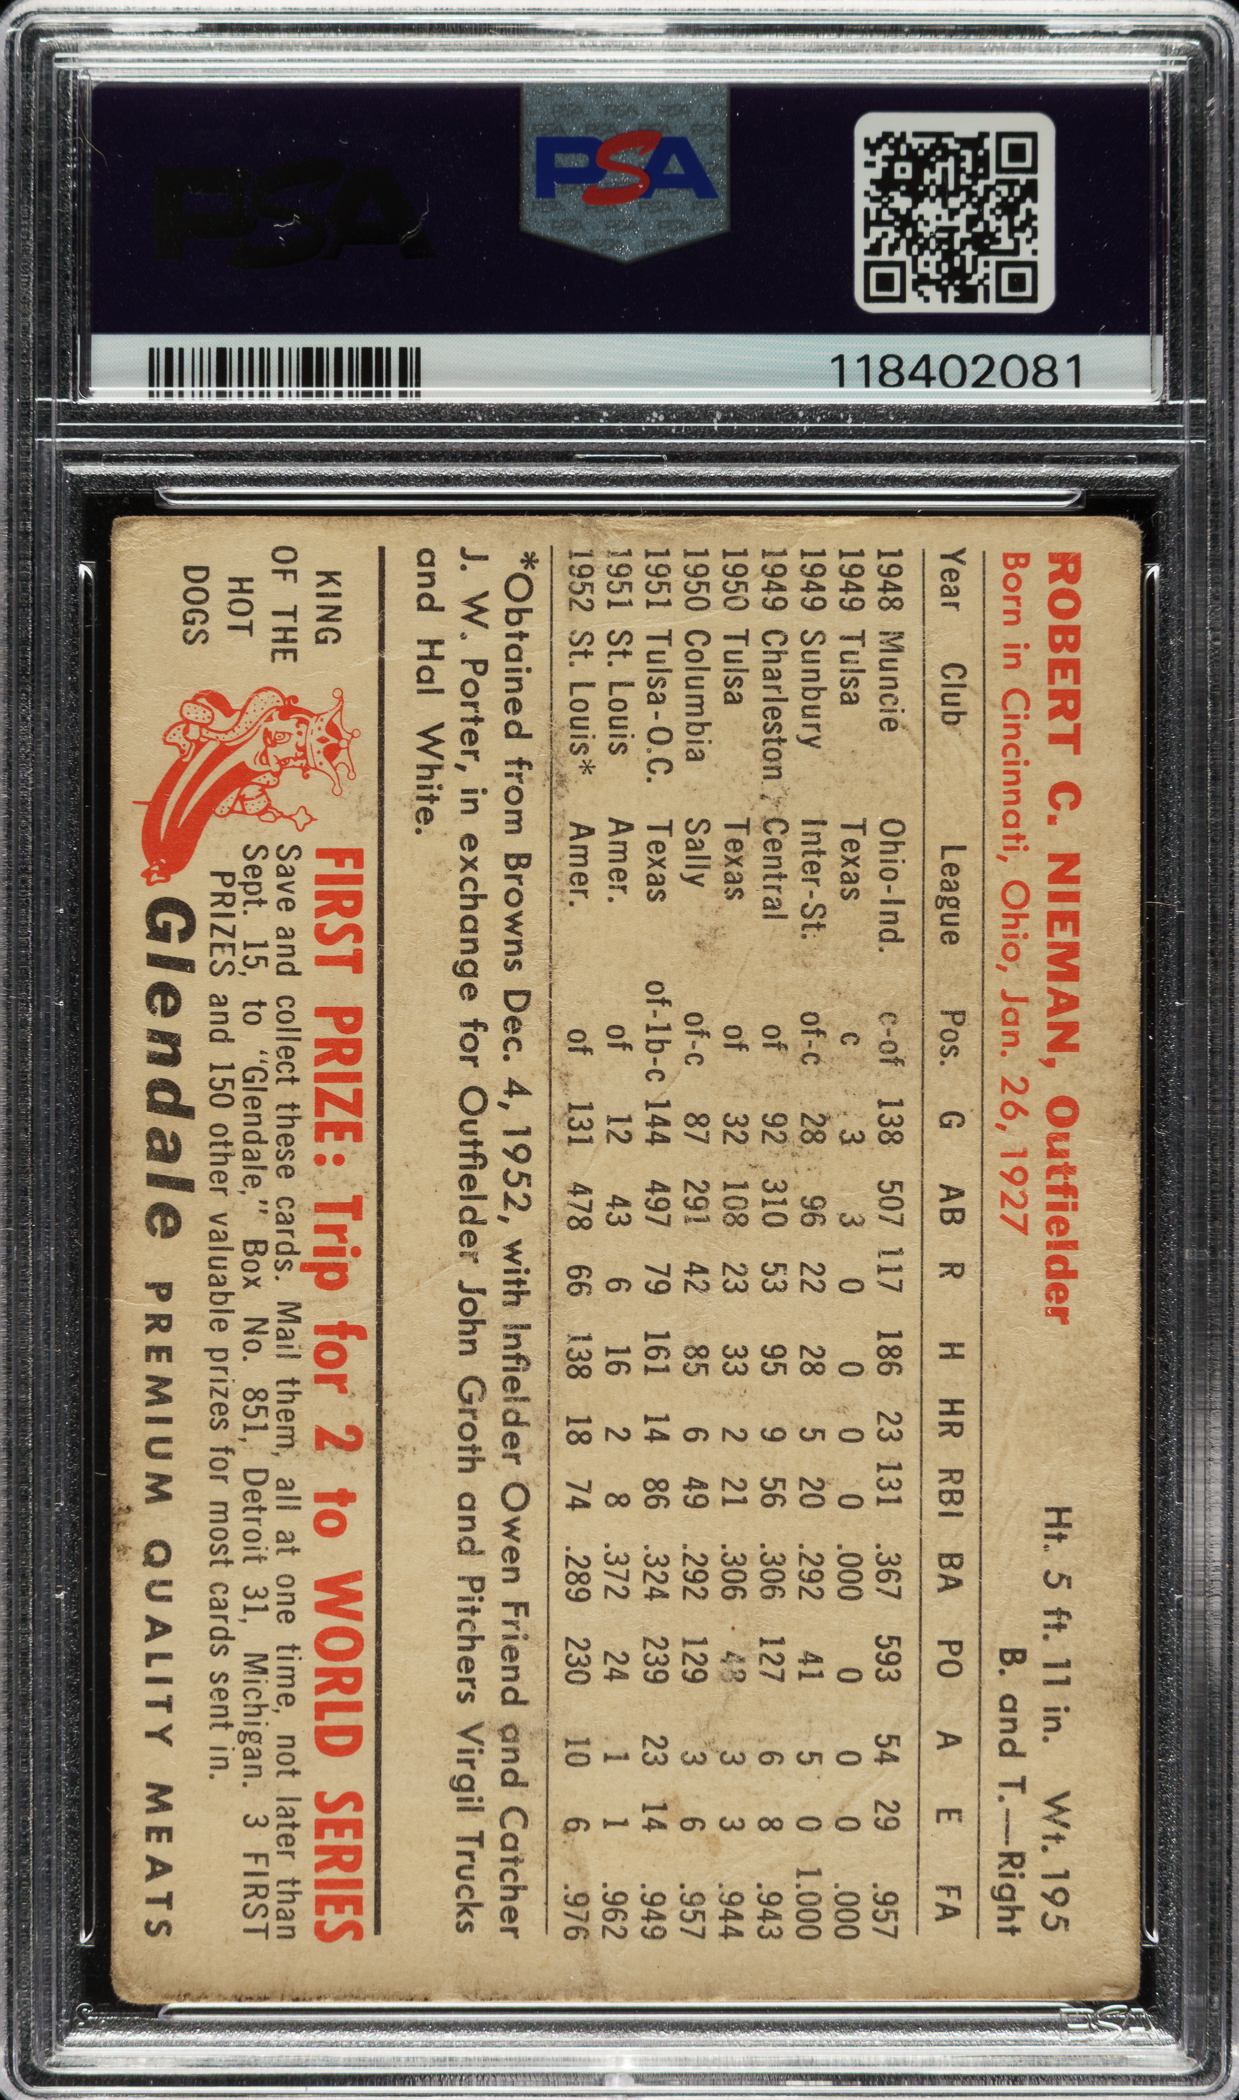 PSA
PSA
118402081
ROBERT C. NIEMAN, Outfielder Ht. 5 ft. 11 in. Wt. 195
Born in Cincinnati, Ohio, Jan. 26, 1927 B. and T.—Right
Year Club League Pos. G AB R H HR RBI BA PO A E FA
1948 Muncie Ohio-Ind. c-of 138 507 117 186 23 131 .367 593 54 29 .957
1949 Tulsa Texas c 3 3 0 0 0 0 .000 0 0 0 .000
1949 Sunbury Inter-St. of-c 28 96 22 28 5 20 .292 41 5 0 1.000
1949 Charleston Central of 92 310 53 95 9 56 .306 127 6 8 .943
1950 Tulsa Texas of 32 108 23 33 2 21 .306 48 3 3 .944
1950 Columbia Sally of-c 87 291 42 85 6 49 .292 129 3 6 .957
1951 Tulsa-O.C. Texas of-1b-c 144 497 79 161 14 86 .324 239 23 14 .949
1951 St. Louis Amer. of 12 43 6 16 2 8 .372 24 1 1 .962
1952 St. Louis* Amer. of 131 478 66 138 18 74 .289 230 10 6 .976
*Obtained from Browns Dec. 4, 1952, with Infielder Owen Friend and Catcher
J. W. Porter, in exchange for Outfielder John Groth and Pitchers Virgil Trucks
and Hal White.
KING
OF THE
HOT
DOGS
FIRST PRIZE: Trip for 2 to WORLD SERIES
Save and collect these cards. Mail them, all at one time, not later than
Sept. 15, to "Glendale," Box No. 851, Detroit 31, Michigan. 3 FIRST
PRIZES and 150 other valuable prizes for most cards sent in.
Glendale PREMIUM QUALITY MEATS
PSA